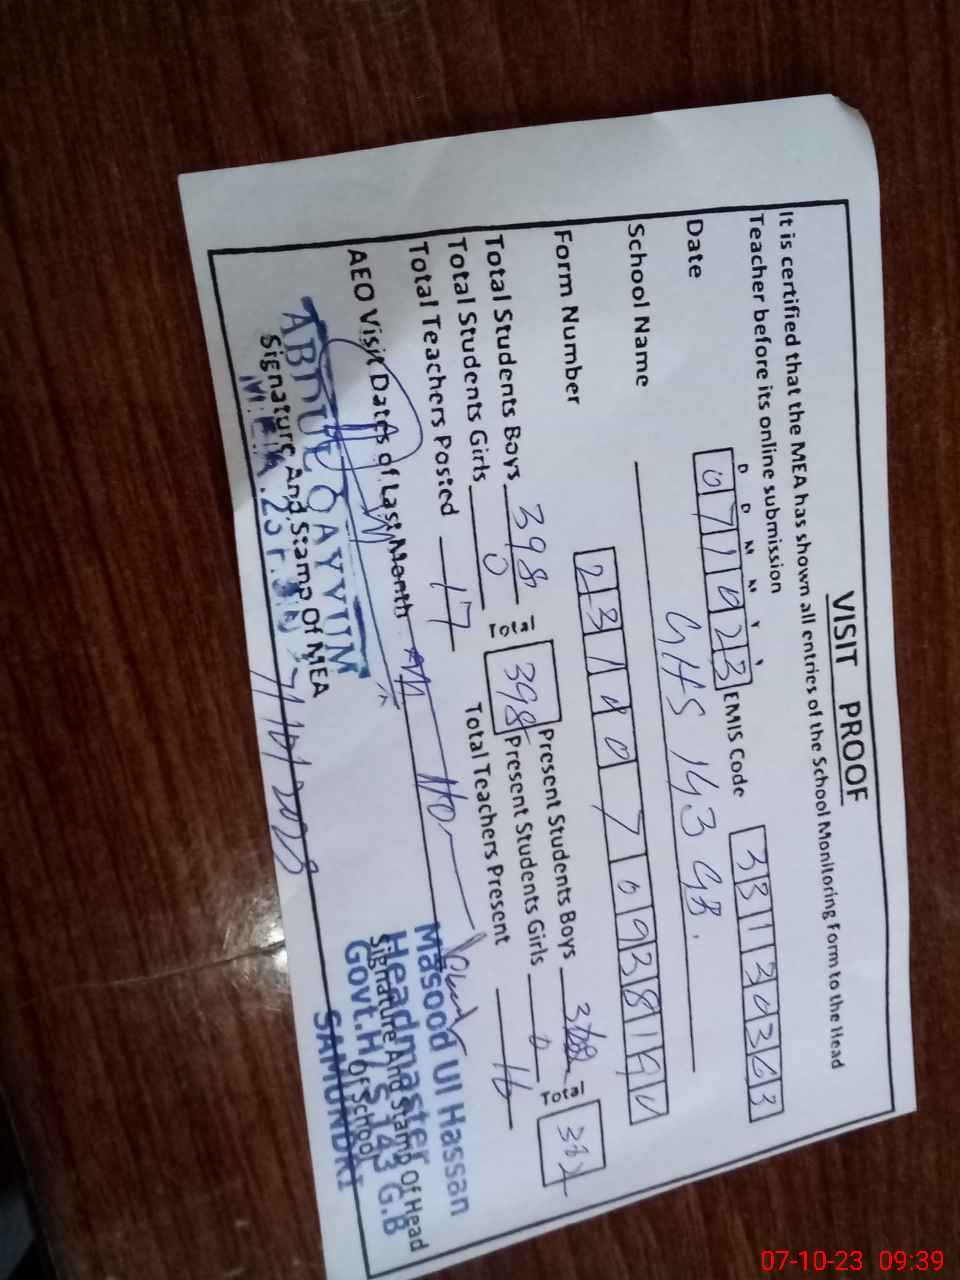 VISIT PROOF
It is certified that the MEA has shown all entries of the School Monitoring Form to the Head
Teacher before its online submission
D D M M Y Y
Date 071023 EMIS Code
School Name GHS 143 GB.
Form Number
Total Students Boys 398 Total 398 Present Students Boys Total
Total Students Girls 0 Present Students Girls 0
Total Teachers Posted 17 Total Teachers Present 16
AEO Visit Dates of Last Month
ABDUL QAYYUM
Signature And Stamp Of MEA
7/10/2023
Masood Ul Hassan
Headmaster
Signature And Stamp Of Head
Govt.H/S 143 G.B
Of School
SAMUNDRI
07-10-23 09:39